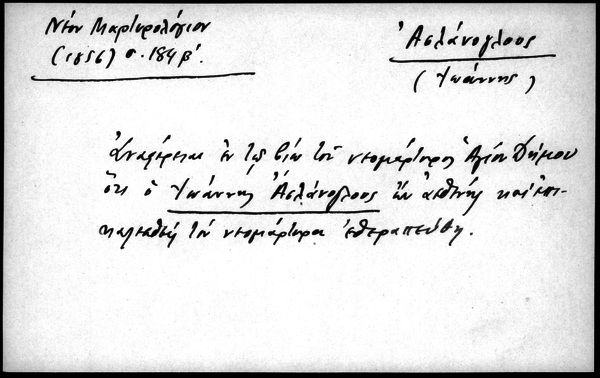 Νέον Μαρτυρολόγιον
(1856) σ. 184 β'.
Ἀσλάνογλους
(Ἰωάννης)
Ἀναφέρεται ἐν τῷ βίῳ τοῦ νεομάρτυρος Ἁγίου Δήμου
ὅτι ὁ Ἰωάννης Ἀσλάνογλους ὤν ἀσθενής καί ἐπι-
καλεσθείς τόν νεομάρτυρα ἐθεραπεύθη.